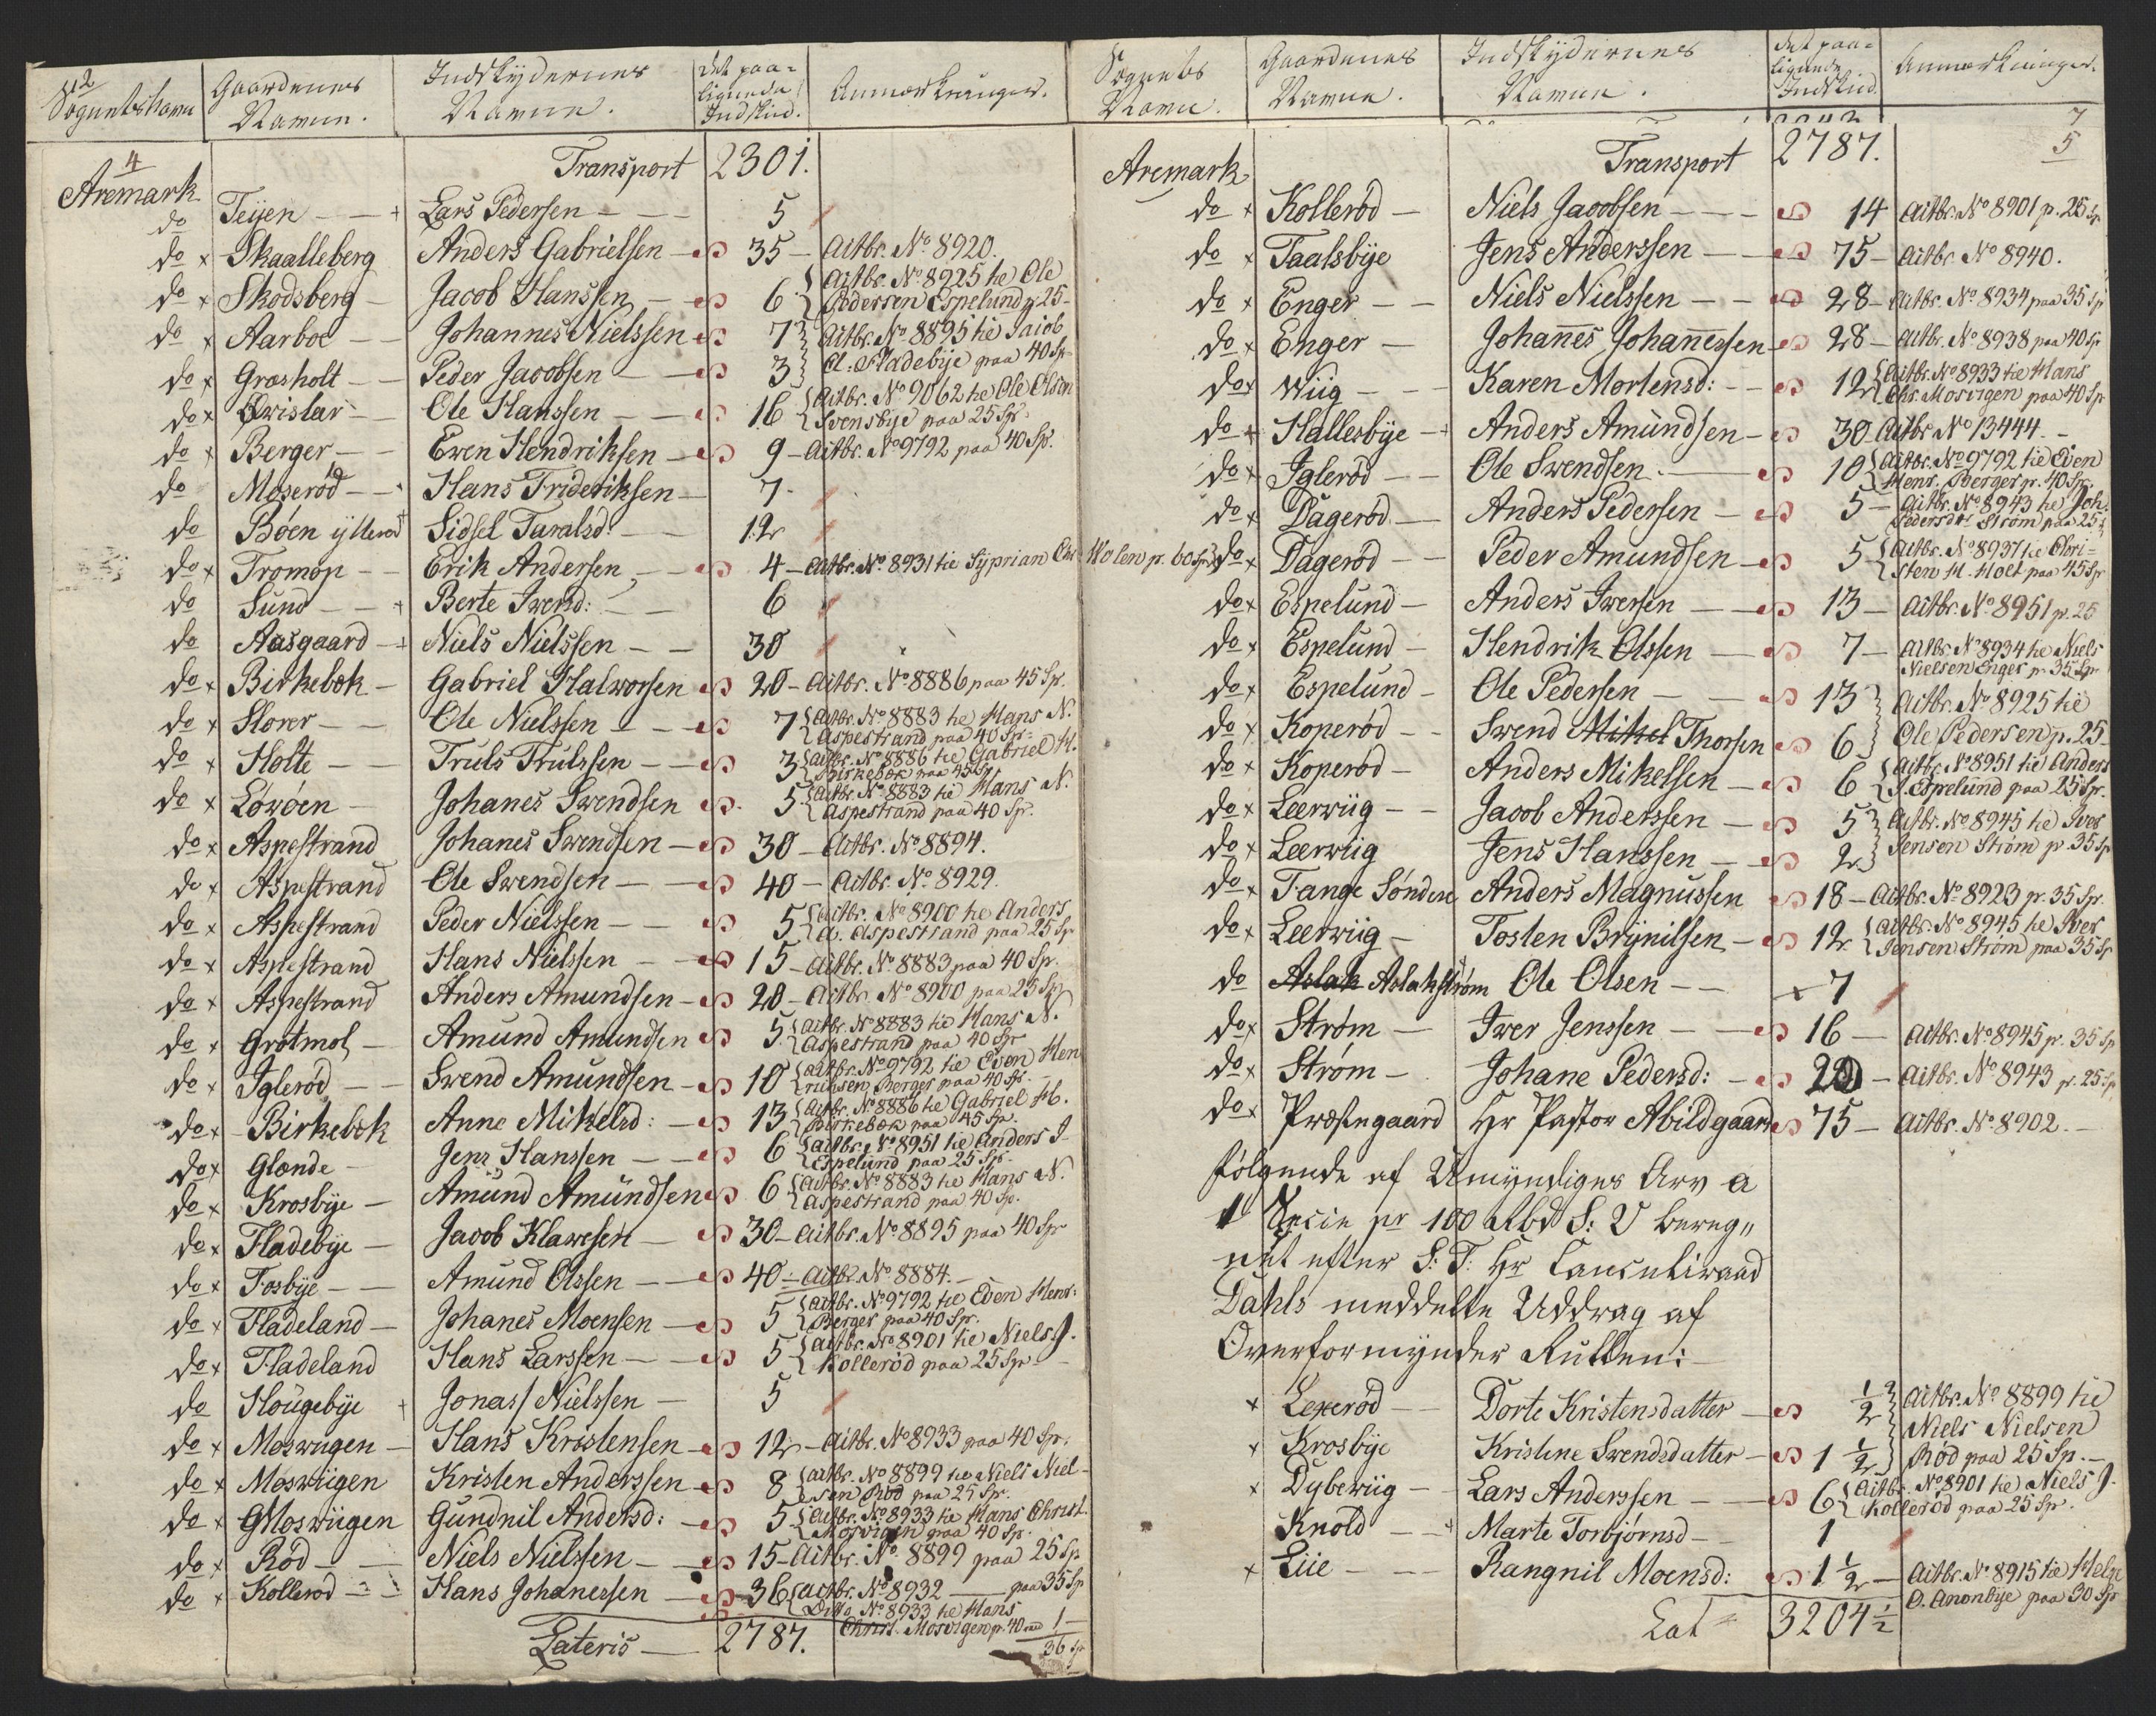 12
Sognets Navn | Gaardenes Navne. | Indskydernes Navne. | Det paalignende Indskud. | Anmærkninger.
4
Aremark | Transport | 2301.
do Teijen + Lars Pedersen 5
do x Skaalleberg Anders Gabrielsen 35 – Actbr. No 8920.
do x Skodsberg Jacob Hanssen 6 {Actbr. No 8925 tie Ole
Pedersen Espelund p. 25 –
do x Aarboe Johannes Nielssen 7} Actbr. No 8895 tie Jacob
do x Græsholt Peder Jacobsen 3} Cl. Fladebye paa 40 Sp.
do x Qvislar Ole Hanssen 16 {Actbr. No 9062 tie Ole Olsen
Svensbye paa 25 Sp.
do x Berger Ewen Hendriksen 9 – Actbr. No 9792 paa 40 Sp.
do Moserød Hans Frideriksen 7.
do Bøen ytterød Sidsel Taralsd. 12
do x Tromop Erik Andersen 4 – Actbr. No 8931 tie Syprian Chr. Holen p. 60 Sp.
do Sund + Berte Iversd: 6
do Aasgaard + Niels Nielssen 30
do x Birkebøk Gabriel Halvorsen 20 – Actbr. No 8886 paa 45 Sp.
do x Slorer Ole Nielssen 7 {Actbr. No 8883 tie Hans N.
Aspestrand paa 40 Sp.
do x Holte Truls Trulssen 3 {Actbr. No 8886 tie Gabriel H.
Birkebøk paa 45 Sp.
do x Løvøen Johanes Swendsen 5 {Actbr. No 8883 tie Hans N.
Aspestrand paa 40 Sp.
do x Aspestrand Johanes Swendsen 30 – Actbr. No 8894.
do x Aspestrand Ole Swendsen 40 – Actbr. No 8929.
do x Aspestrand Peder Nielssen 5 {Actbr. No 8900 tie Anders
A. Aspestrand paa 25 Sp
do x Aspestrand Hans Nielssen 15 – Actbr. No 8883 paa 40 Sp.
do x Aspestrand Anders Amundsen 20 – Actbr. No 8900 paa 25 Sp
do x Grotmol Amund Amundsen 5 {Actbr. No 8883 tie Hans N.
Aspestrand paa 40 Sp
do x Iglerød Swend Amundsen 10 {Actbr. No 9792 tie Even Hen
riksen Berger paa 40 Sp.
do x Birkebøk Anne Mikelsd: 13 {Actbr. No 8886 tie Gabriel H.
Birkebøk paa 45 Sp.
do x Glende Jens Hanssen 6 {Actbr. No 8951 tie Anders I
Espelund paa 25 Sp.
do x Krosbye Amund Amundsen 6 {Actbr. No 8883 tie Hans N.
Aspestrand paa 40 Sp.
do x Fladebye Jacob Klawesen 30 – Actbr. No 8895 paa 40 Sp
do x Fosbye Amund Olssen 40 – Actbr. No 8884.
do x Fladeland Johanes Moensen 5 {Actbr. No 9792 tie Even Henr:
Berger paa 40 Sp.
do x Fladeland Hans Larssen 5 {Actbr. No 8901 tie Niels J.
Kollerød paa 25 Sp
do Hougebye + Jonas Nielssen 5
do x Moswigen Hans Kristensen 12 – Actbr. No 8933 paa 40 Sp.
do x Moswiigen Kristen Anderssen 8 {Actbr. No 8899 tie Niels Niel
sen Rød paa 25 Sp.
do x Moswiigen Gundnil Andersd: 5 {Actbr. No 8933 tie Hans Christ.
Mosvigen paa 40 Sp.
do x Rød Niels Nielssen 15 – Actbr. No 8899 paa 25 Sp
do x Kollerød Hans Johanessen 36 {Actbr. No 8932 – paa 35 Sp
Ditto No 8933 tie Hans
Christ. Mosvigen p. 40 1
36 Sp
Lateris 2787.
Sognets Navn. | Gaardenes Navne. | Indskydernes Navne. | Det paalignende Indskud. | Anmærkninger.
7
5
Aremark | Transport | 2787.
do x Kollerød Niels Jacobsen 14 Actbr. No 8901 p. 25 Sp
do x Taalsbye Jens Anderssen 75 – Actbr. No 8940.
do x Enger Niels Nielssen 28 – Actbr. No 8934 paa 35 Sp
do x Enger Johannes Johannessen 28 – Actbr. No 8938 paa 40 Sp
do x Wiig Karen Mortensd: 12 {Actbr. No 8933 tie Hans
Chr. Mosvigen paa 40 Sp
do x Hallesbye Anders Amundsen 30 – Actbr No 13444.
do x Iglerød Ole Swendsen 10 {Actbr. No 9792 tie Even
Henr. Berger p. 40 Sp.
do x Dagerød Anders Pedersen 5 – Actbr. No 8943 tie Joh.
Pedersdtr Strøm paa 25
do x Dagerød Peder Amundsen 5 {Actbr. No 8937 tie Chri-
sten H. Holt paa 45 Sp
do x Espelund Anders Iwersen 13 – Actbr. No 8951 p. 25
do x Espelund Hendrik Olssen 7 – Actbr No 8934 tie Niels
Nielsen Enger p. 35 Sp
do x Espelund Ole Pedersen 13} Actbr. No 8925 tie
do x Koperød Swend Mikel Thorsen 6} Ole Pedersen p. 25
do x Koperød Anders Mikelssen 6 {Actbr. No 8951 tie Anders
I. Espelund paa 25 Sp.
do x Leerwiig Jacob Anderssen 5} Actbr. No 8945 tie Iver
do x Leerwiig Jens Hanssen 2} Jensen Strøm p. 35 Sp
do x Tange Søndere Anders Magnussen 18 – Actbr. No 8923 p. 35 Sp.
do x Leerwiig Tosten Brynilsen 12 {Actbr. No 8945 tie Iver
Jensen Strøm paa 35 Sp
do Aslak Aslakstrøm Ole Olsen x 7
do x Strøm Iwer Jenssen 16 – Actbr. No 8945 p. 35 Sp
do x Strøm Johane Pedersd: 20 – Actbr. No 8943 p. 25 Sp
do x Præstegaard Hr Pastor Abildgaard 75 – Actbr. No 8902.
følgende af Umyndiges Arv a
1 Specie pr 100 Rbd S: V bereg„
net efter S: T: Hr Cancelliraad
Dahls meddelte Uddrag af
Overformynder Rullen:
x Lexerød Dorte Kristensdatter ½} Actbr. No 8899 tie
Niels Nielsen
x Krosbye Kristine Swendsdatter 1 ½} Rød paa 25 Sp.
x Dybewiig Lars Anderssen 6 {Actbr. No 8901 tie Niels J.
Kollerød paa 25 Sp.
Knold + Marte Torbjørnsd 1
x Liie Rangnil Moensd: 1 ½ – Actbr. No 8915 tie Helge
O. Anonbye paa 30 Sp
Lat 3204 ½